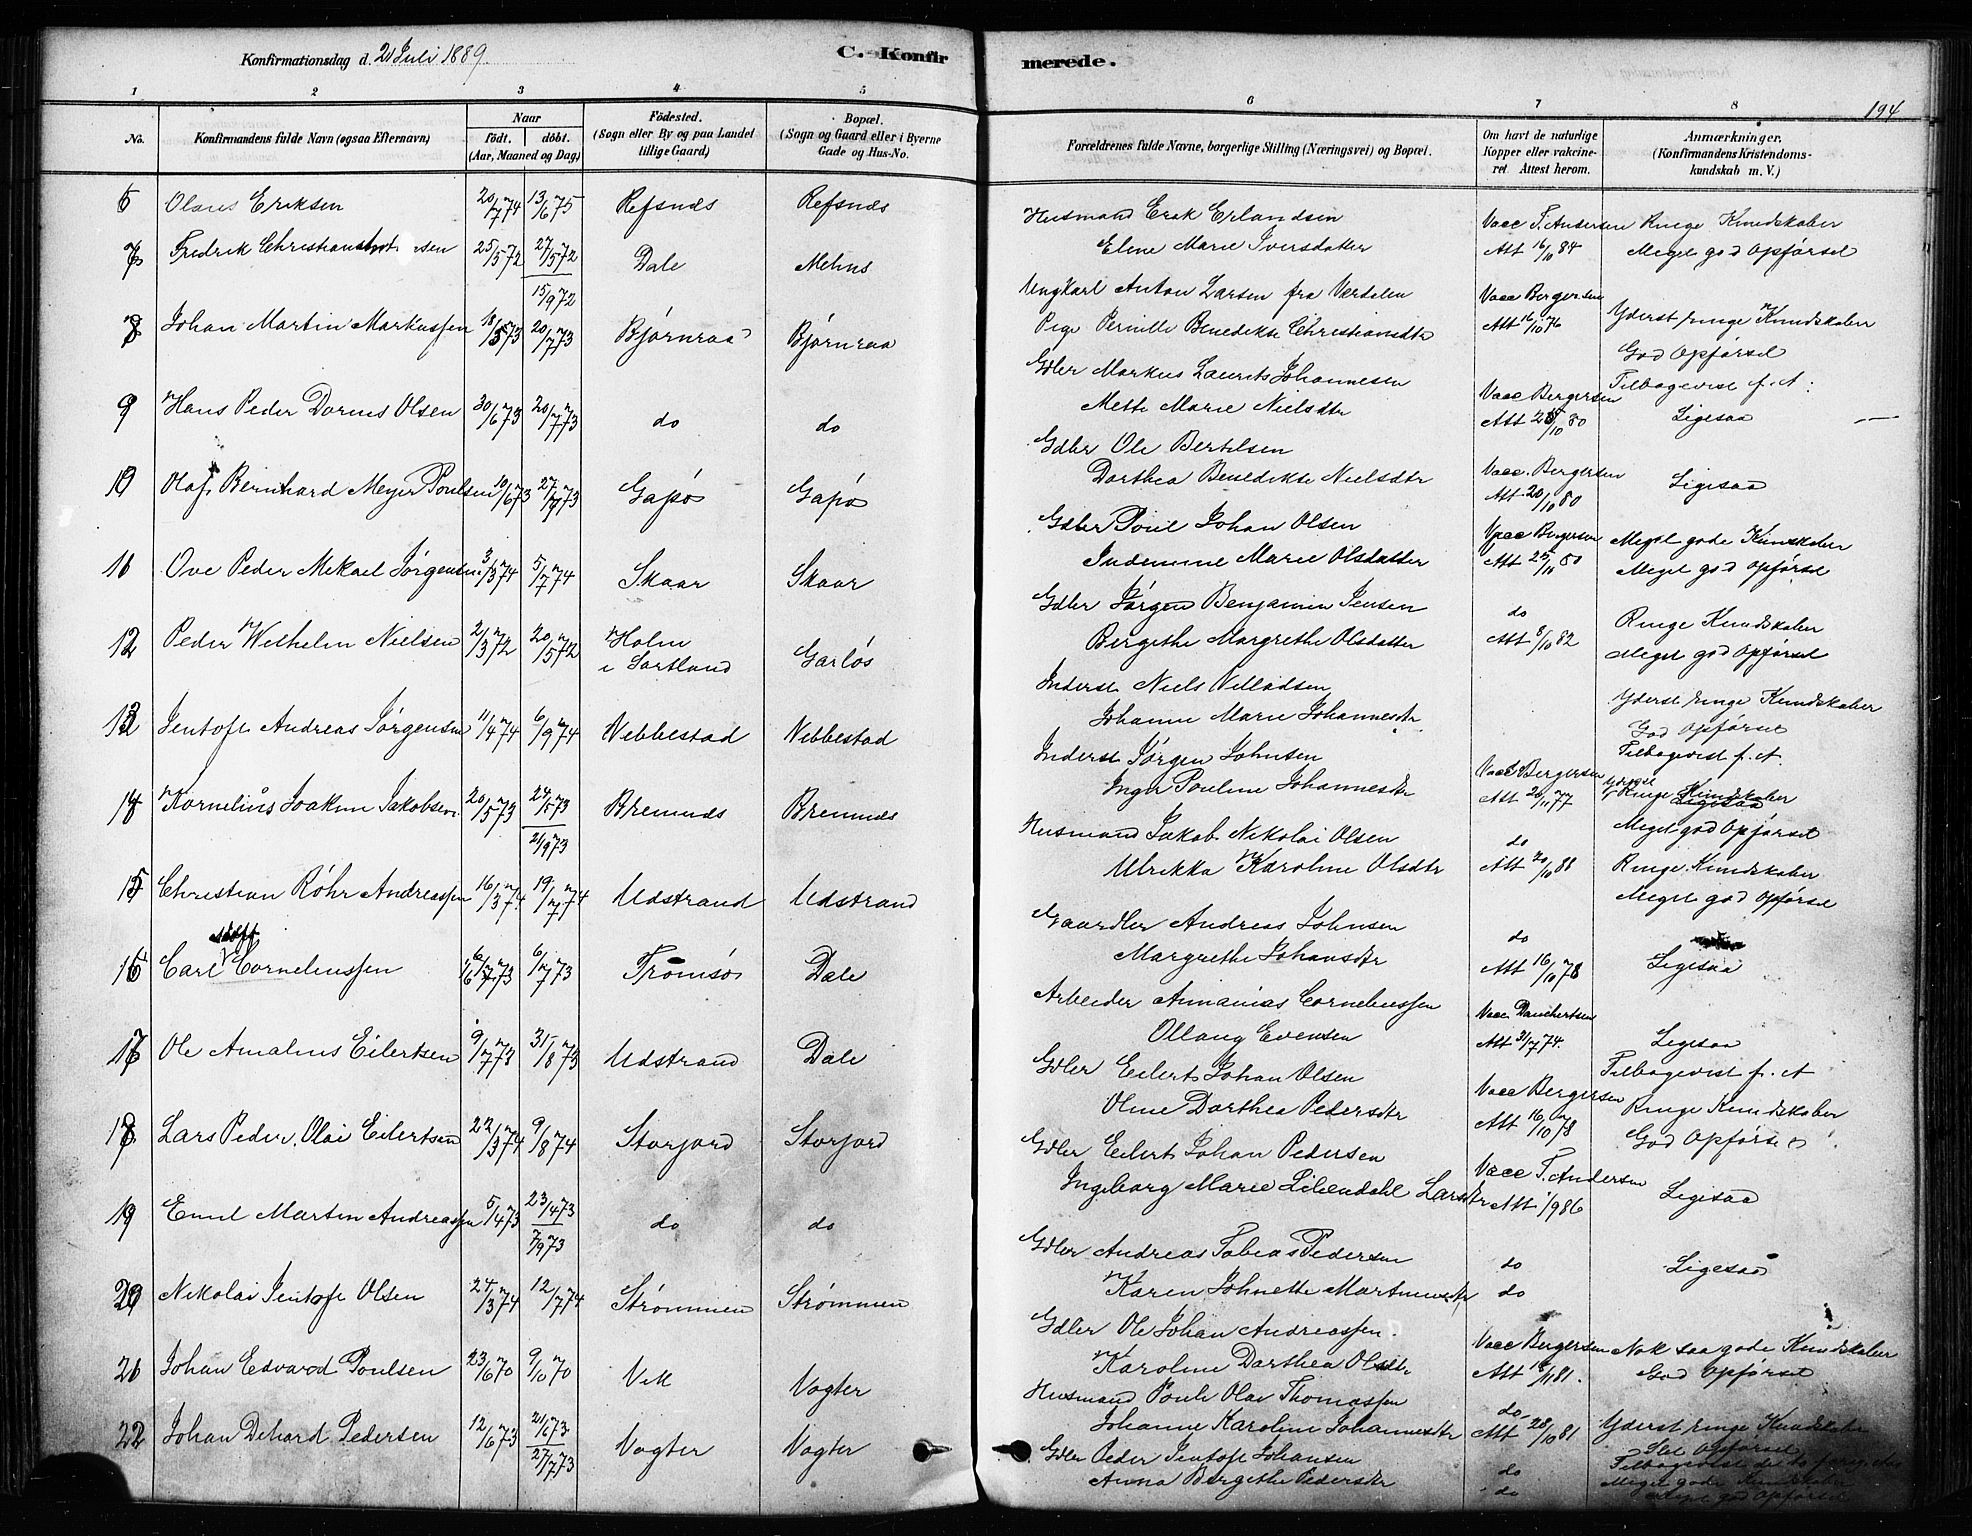 Konfirmationsdag d. 21 Juli 1889
C. Konfirmerede.
194
1 2 3 4 5 6 7 8
No.
Konfirmandens fulde Navn (ogsaa Efternavn)
Naar
födt. döbt.
(Aar, Maaned og Dag)
Födested.
(Sogn eller By og paa Landet
tillige Gaard)
Bopæl.
(Sogn og Gaard eller i Byerne
Gade og Hus-No.
Forældrenes fulde Navne, borgerlige Stilling (Næringsvei) og Bopæl.
Om havt de naturlige
Kopper eller vakcine-
ret. Attest herom.
Anmærkninger.
(Konfirmandens Kristendoms-
kundskab m. V.)
6 Olaus Eriksen 20/7 74 13/6 75 Refsnæs Refsnæs
Husmand Erik Erlandsen Vacc T. Andersen Ringe Kundskaber
Elene Marie Iversdatter Att 16/10 84 Meget god Opførsel
7 Fredrik Christian 25/5 72 27/5 72 Dale Melnes
15/9 72
Ungkarl Anton Larsen fra Værdalen Vacc Bergersen Yderst ringe Kundskaber
Pige Pernille Benedikte Christiansdtr Att 16/10 76 God Opførsel
8 Johan Martin Markussen 18/5 73 20/7 73 Bjørnraa Bjørnraa
Gdlr Markus Laurits Johannesen Vacc Bergersen Tilbagevist f. A.
Mette Marie Nielsdtr Att 80 Ligesaa
9 Hans Peder Dornes Olsen 30/6 73 20/7 73 do do
Gdlr Ole Bertelsen Vacc. Bergersen
Dorthea Benedikte Nielsdtr Att 20/10 80 Ligesaa
10 Olaf Bernhard Meyer Poulsen 10/6 73 27/7 73 Gapø Gapø
Gdlr Poul Johan Olsen Vacc Bergersen Meget gode Kundskaber
Indemine Marie Olsdatter Att 80 Meget god Opførsel
11 Ove Peder Mekael Jørgensen 3/3 74 5/7 74 Skaar Skaar
Gdlr Jørgen Benjamin Jensen do Ringe Kundskaber
Bergithe Margrethe Olsdatter Att 8/10 82 Meget god Opførsel
12 Peder Wilhelm Nielsen 2/3 72 20/5 72 Holm i Sortland Garløs
Inderst Niels Villadsen Yderst ringe Kundskaber
Johanne Marie Johannesdtr God Opførsel
13 Jentoft Andreas Jørgensen 11/4 74 6/9 74 Vebbestad Vebbestad
Tilbagevist f. A.
Inderst Jørgen Johnsen Vacc Bergersen
Inger Pouline Johannesdtr Att 20/11 77 Ringe Kundskaber
14 Kornelius Joakim Jakobsen 20/5 73 24/5 73 Bremnes Bremnes
21/9 73
Meget god Opførsel
Husmand Jakob Nikolai Olsen do
Ulrikka Karoline Olsdtr Att 20/10 88 Ringe Kundskaber
15 Christian Röhr Andreassen 16/3 74 19/7 74 Udstrand Udstrand
Meget god Opførsel
Gaardlr Andreas Johnsen do
Margrethe Johansdtr Att 16/10 78 Ligesaa
16 Carl Adolff Cornelius­sen 6/7 73 Tromsø Dale
Arbeider Annanias Corneliussen Vacc Danchertsen
Ollaug Evensen Att 31/7 74. Ligesaa
17 Ole Amalius Eilertsen 9/7 73 31/8 73 Udstrand Dale
Tilbagevist f. A
Gdlr Eilert Johan Olsen Vacc Bergersen Ringe Kundskaber
Oline Dorthea Pedersdtr Att 16/10 78 God Opførsel
18 Lars Peder Olai Eilertsen 22/3 74 9/8 74 Storjord Storjord
Gdlr Eilert Johan Pedersen Vacc T. Andersen
Ingeborg Marie Lilendahl Larsdtr Att 1/9 86 Ligesaa
19 Emil Martin Andreassen 5/4 73 23/4 73 do do
7/9 73
Gdlr Andreas Tobias Pedersen do Ligesaa
Karen Johnette Martinusdtr do
20 Nikolai Jentoft Olsen 24/3 74 12/7 74 Strømmen Strømmen
Gdlr Ole Johan Andreassen Vacc Bergersen Nok saa gode Kundskaber
Karoline Dorthea Olsdtr Att 81. God Opførsel
21 Johan Edvard Poulsen 23/6 70 9/10 70 Vik Vogter
Husmand Poul Olai Thomassen do
Johanne Karoline Johannesdtr Att 28/10 81 Yderst ringe Kundskaber
22 Johan Dehard Pedersen 12/6 73 21/6 73 Vogter Vogter
27/7 73
Slet Opførsel
Gdlr Peder Jentoft Johansen do
Anna Bergithe Pedersdtr do Meget gode Kundskaber
Meget god Opførsel